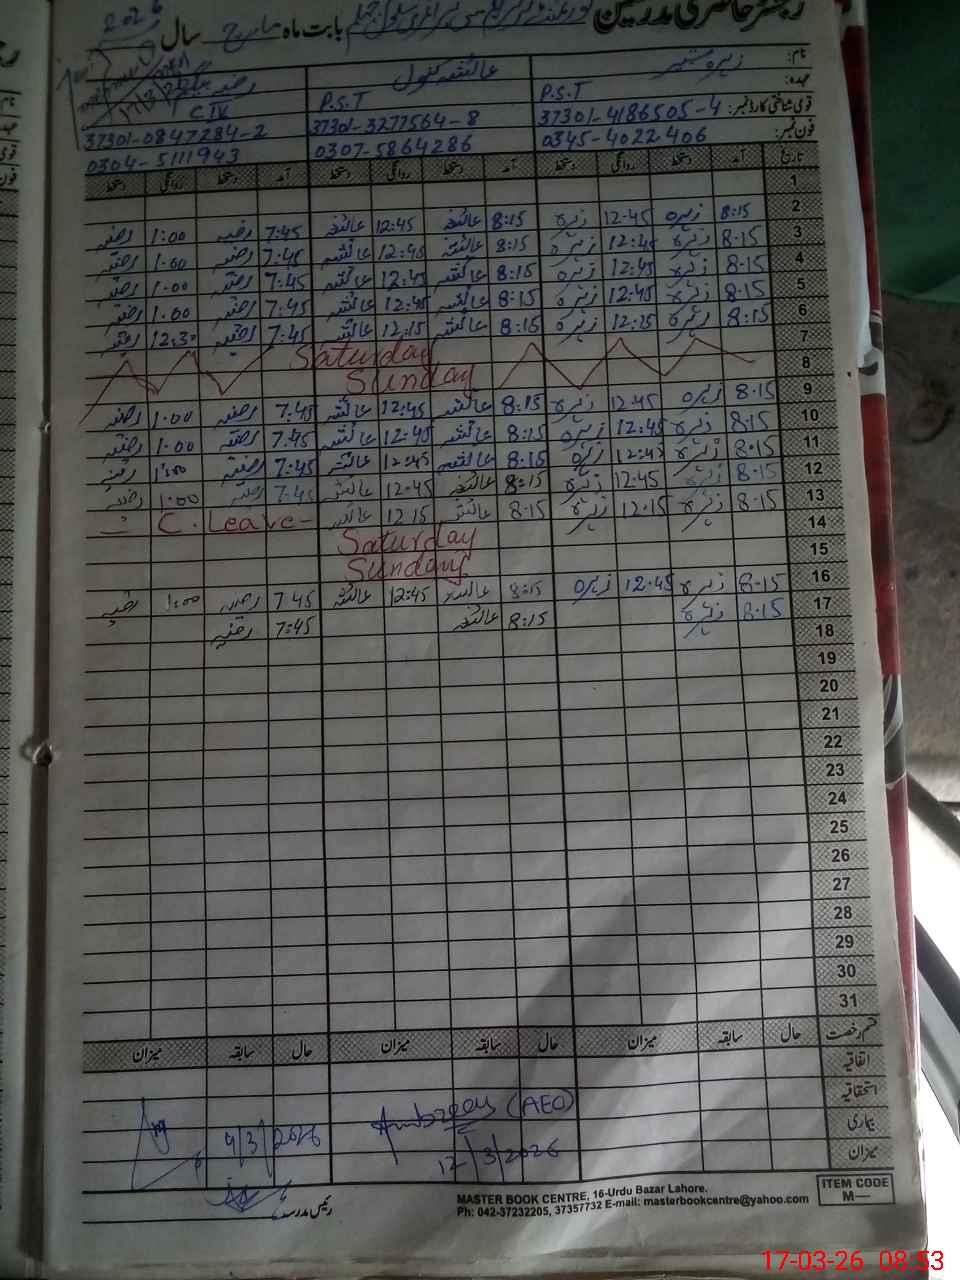 رجسٹر حاضری مدرسین
بابت ماہ مارچ سال 2026
نام: زہرہ عائشہ کنول رضیہ بیگم
عہدہ: P.S.T P.S.T C.IV
قومی شناختی کارڈ نمبر: 37301-4186505-4 37301-3277564-8 37301-0847284-2
فون نمبر: 0345-4022406 0307-5864286 0304-5111943
تاریخ آمد دستخط روانگی دستخط آمد دستخط روانگی دستخط آمد دستخط روانگی دستخط
1
2 8:15 زہرہ 12:45 زہرہ 8:15 عائشہ 12:45 عائشہ 7:45 رضیہ 1:00 رضیہ
3 8:15 زہرہ 12:45 زہرہ 8:15 عائشہ 12:45 عائشہ 7:45 رضیہ 1:00 رضیہ
4 8:15 زہرہ 12:45 زہرہ 8:15 عائشہ 12:45 عائشہ 7:45 رضیہ 1:00 رضیہ
5 8:15 زہرہ 12:45 زہرہ 8:15 عائشہ 12:45 عائشہ 7:45 رضیہ 1:00 رضیہ
6 8:15 زہرہ 12:15 زہرہ 8:15 عائشہ 12:15 عائشہ 7:45 رضیہ 12:30 رضیہ
7 Saturday
8 Sunday
9 8:15 زہرہ 12:45 زہرہ 8:15 عائشہ 12:45 عائشہ 7:45 رضیہ 1:00 رضیہ
10 8:15 زہرہ 12:45 زہرہ 8:15 عائشہ 12:45 عائشہ 7:45 رضیہ 1:00 رضیہ
11 8:15 زہرہ 12:45 زہرہ 8:15 عائشہ 12:45 عائشہ 7:45 رضیہ 1:00 رضیہ
12 8:15 زہرہ 12:45 زہرہ 8:15 عائشہ 12:45 عائشہ 7:45 رضیہ 1:00 رضیہ
13 8:15 زہرہ 12:15 زہرہ 8:15 عائشہ 12:15 عائشہ C. Leave
14 Saturday
15 Sunday
16 8:15 زہرہ 12:45 زہرہ 8:15 عائشہ 12:45 عائشہ 7:45 رضیہ 1:00 رضیہ
17 8:15 زہرہ 8:15 عائشہ 7:45 رضیہ
18
19
20
21
22
23
24
25
26
27
28
29
30
31
قسم رخصت حال سابقہ میزان حال سابقہ میزان حال سابقہ میزان
اتفاقیہ
استحقاقیہ
بیماری
میزان
9/3/2026
Ambreen (AEO)
12/3/2026
رئیس مدرسہ
MASTER BOOK CENTRE, 16-Urdu Bazar Lahore.
Ph: 042-37232205, 37357732 E-mail: masterbookcentre@yahoo.com
ITEM CODE
M—
17-03-26 08:53